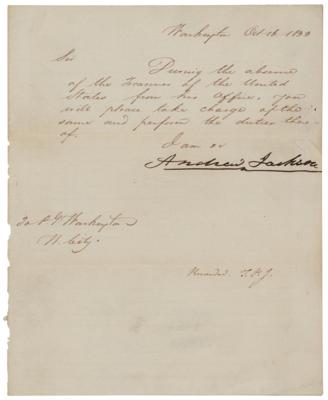 Washington Oct 16, 1830
Sir
During the absence
of the Treasurer of the United
States from his Office, you
will please take charge of the
same and perform the duties there-
of.
I am &c
Andrew Jackson
To P. G. Washington
W. City.
Recorded.